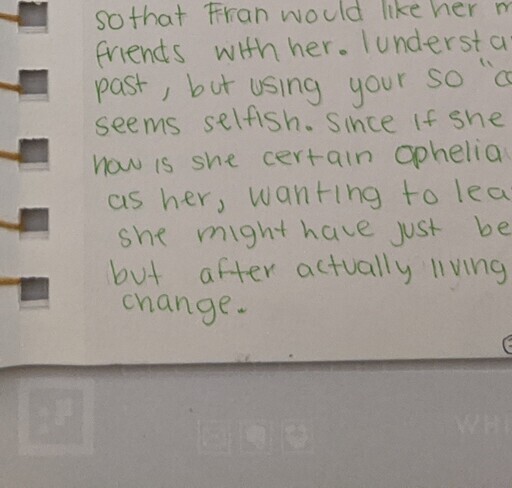 so that Fran would like her
friends with her. I understa
past, but using your so "c
seems selfish. Since if she
how is she certain Ophelia
as her, wanting to lea
she might have just be
but after actually living
change.
WHI